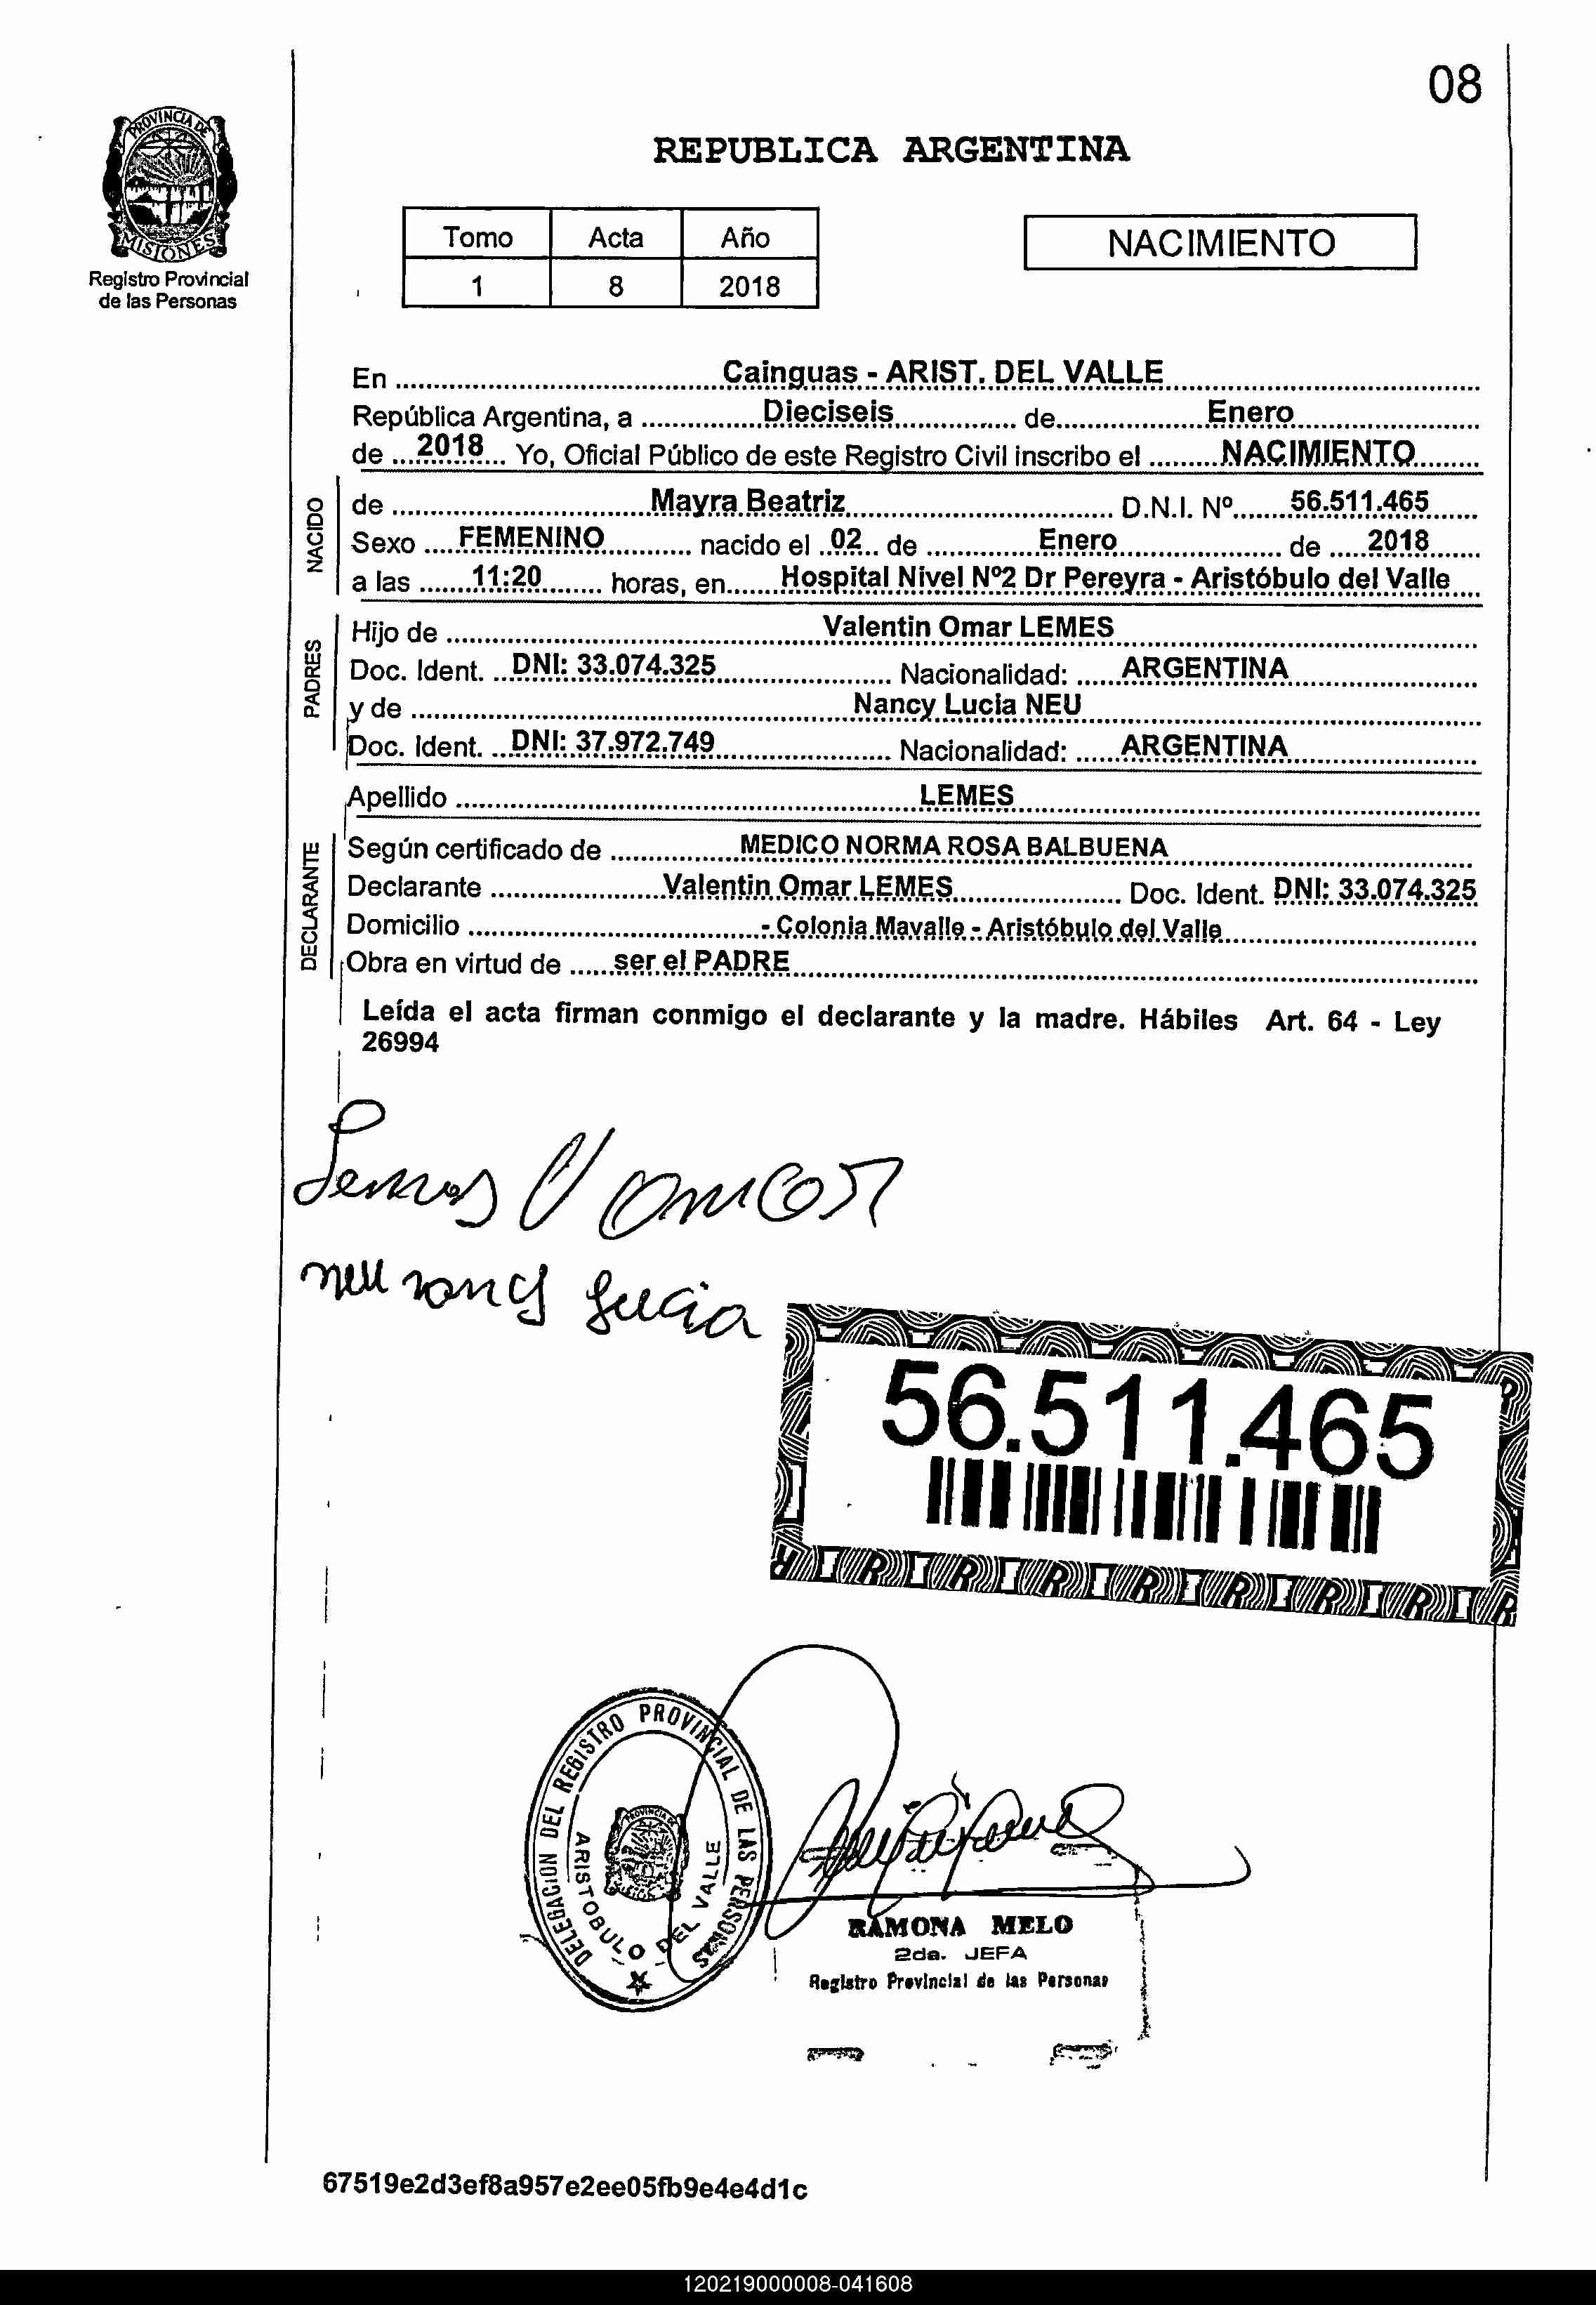 08
PROVINCIA DE
MISIONES
Registro Provincial
de las Personas
REPUBLICA ARGENTINA
Tomo Acta Año
1 8 2018
NACIMIENTO
En ........ Cainguas - ARIST. DEL VALLE ........
República Argentina, a ........ Dieciseis ........ de ........ Enero ........
de ... 2018 ... Yo, Oficial Público de este Registro Civil inscribo el ........ NACIMIENTO ........
NACIDO
de ........ Mayra Beatriz ........ D.N.I. Nº ....... 56.511.465 ......
Sexo ..... FEMENINO ........ nacido el .. 02 .. de ........ Enero ........ de ..... 2018 ......
a las ....... 11:20 ........ horas, en ....... Hospital Nivel Nº2 Dr Pereyra - Aristóbulo del Valle ....
PADRES
Hijo de ........ Valentin Omar LEMES ........
Doc. Ident. ... DNI: 33.074.325 ........ Nacionalidad: ...... ARGENTINA ........
y de ........ Nancy Lucia NEU ........
Doc. Ident. ... DNI: 37.972.749 ........ Nacionalidad: ...... ARGENTINA ........
Apellido ........ LEMES ........
DECLARANTE
Según certificado de ........ MEDICO NORMA ROSA BALBUENA ........
Declarante ........ Valentin Omar LEMES ........ Doc. Ident. DNI: 33.074.325
Domicilio ........ - Colonia Mavalle - Aristóbulo del Valle ........
Obra en virtud de ...... ser el PADRE ........
Leída el acta firman conmigo el declarante y la madre. Hábiles Art. 64 - Ley
26994
Lemes V Omar
neu nancy Lucia
56.511.465
DELEGACION DEL REGISTRO PROVINCIAL DE LAS PERSONAS
ARISTOBULO DEL VALLE
RAMONA MELO
2da. JEFA
Registro Provincial de las Personas
67519e2d3ef8a957e2ee05fb9e4e4d1c
120219000008-041608